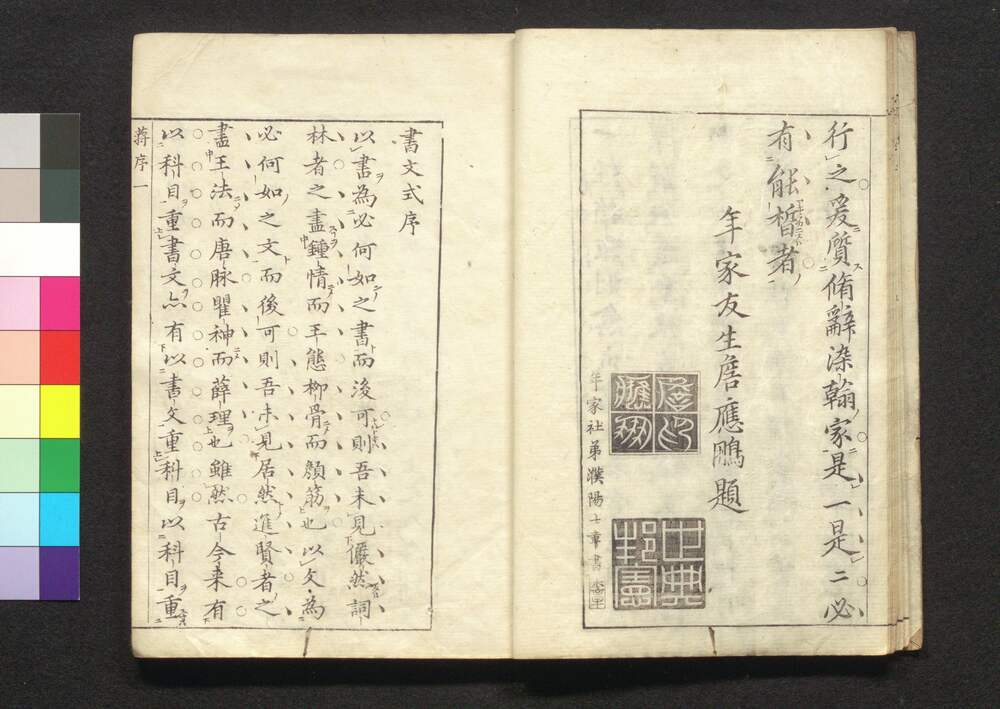 行之爰質脩辭染翰家是一是二必
有能晢者
年家友生詹應鵬題
年家社弟濮陽士章書
書文式序
以書為必何如之書而後可則吾未見儼然詞
林者之盡鍾情而王態柳骨而顏筋也以文為
必何如之文而後可則吾未見居然進賢者之
盡王法而唐脉瞿神而薛理也雖然古今来有
以科目重書文亦有以書文重科目以科目重
蔣序一